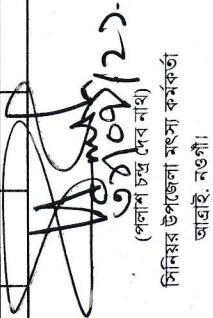 (পলাশ চন্দ্র দেব নাথ)
সিনিয়র উপজেলা মৎস্য কর্মকর্তা
আত্রাই, নওগাঁ।